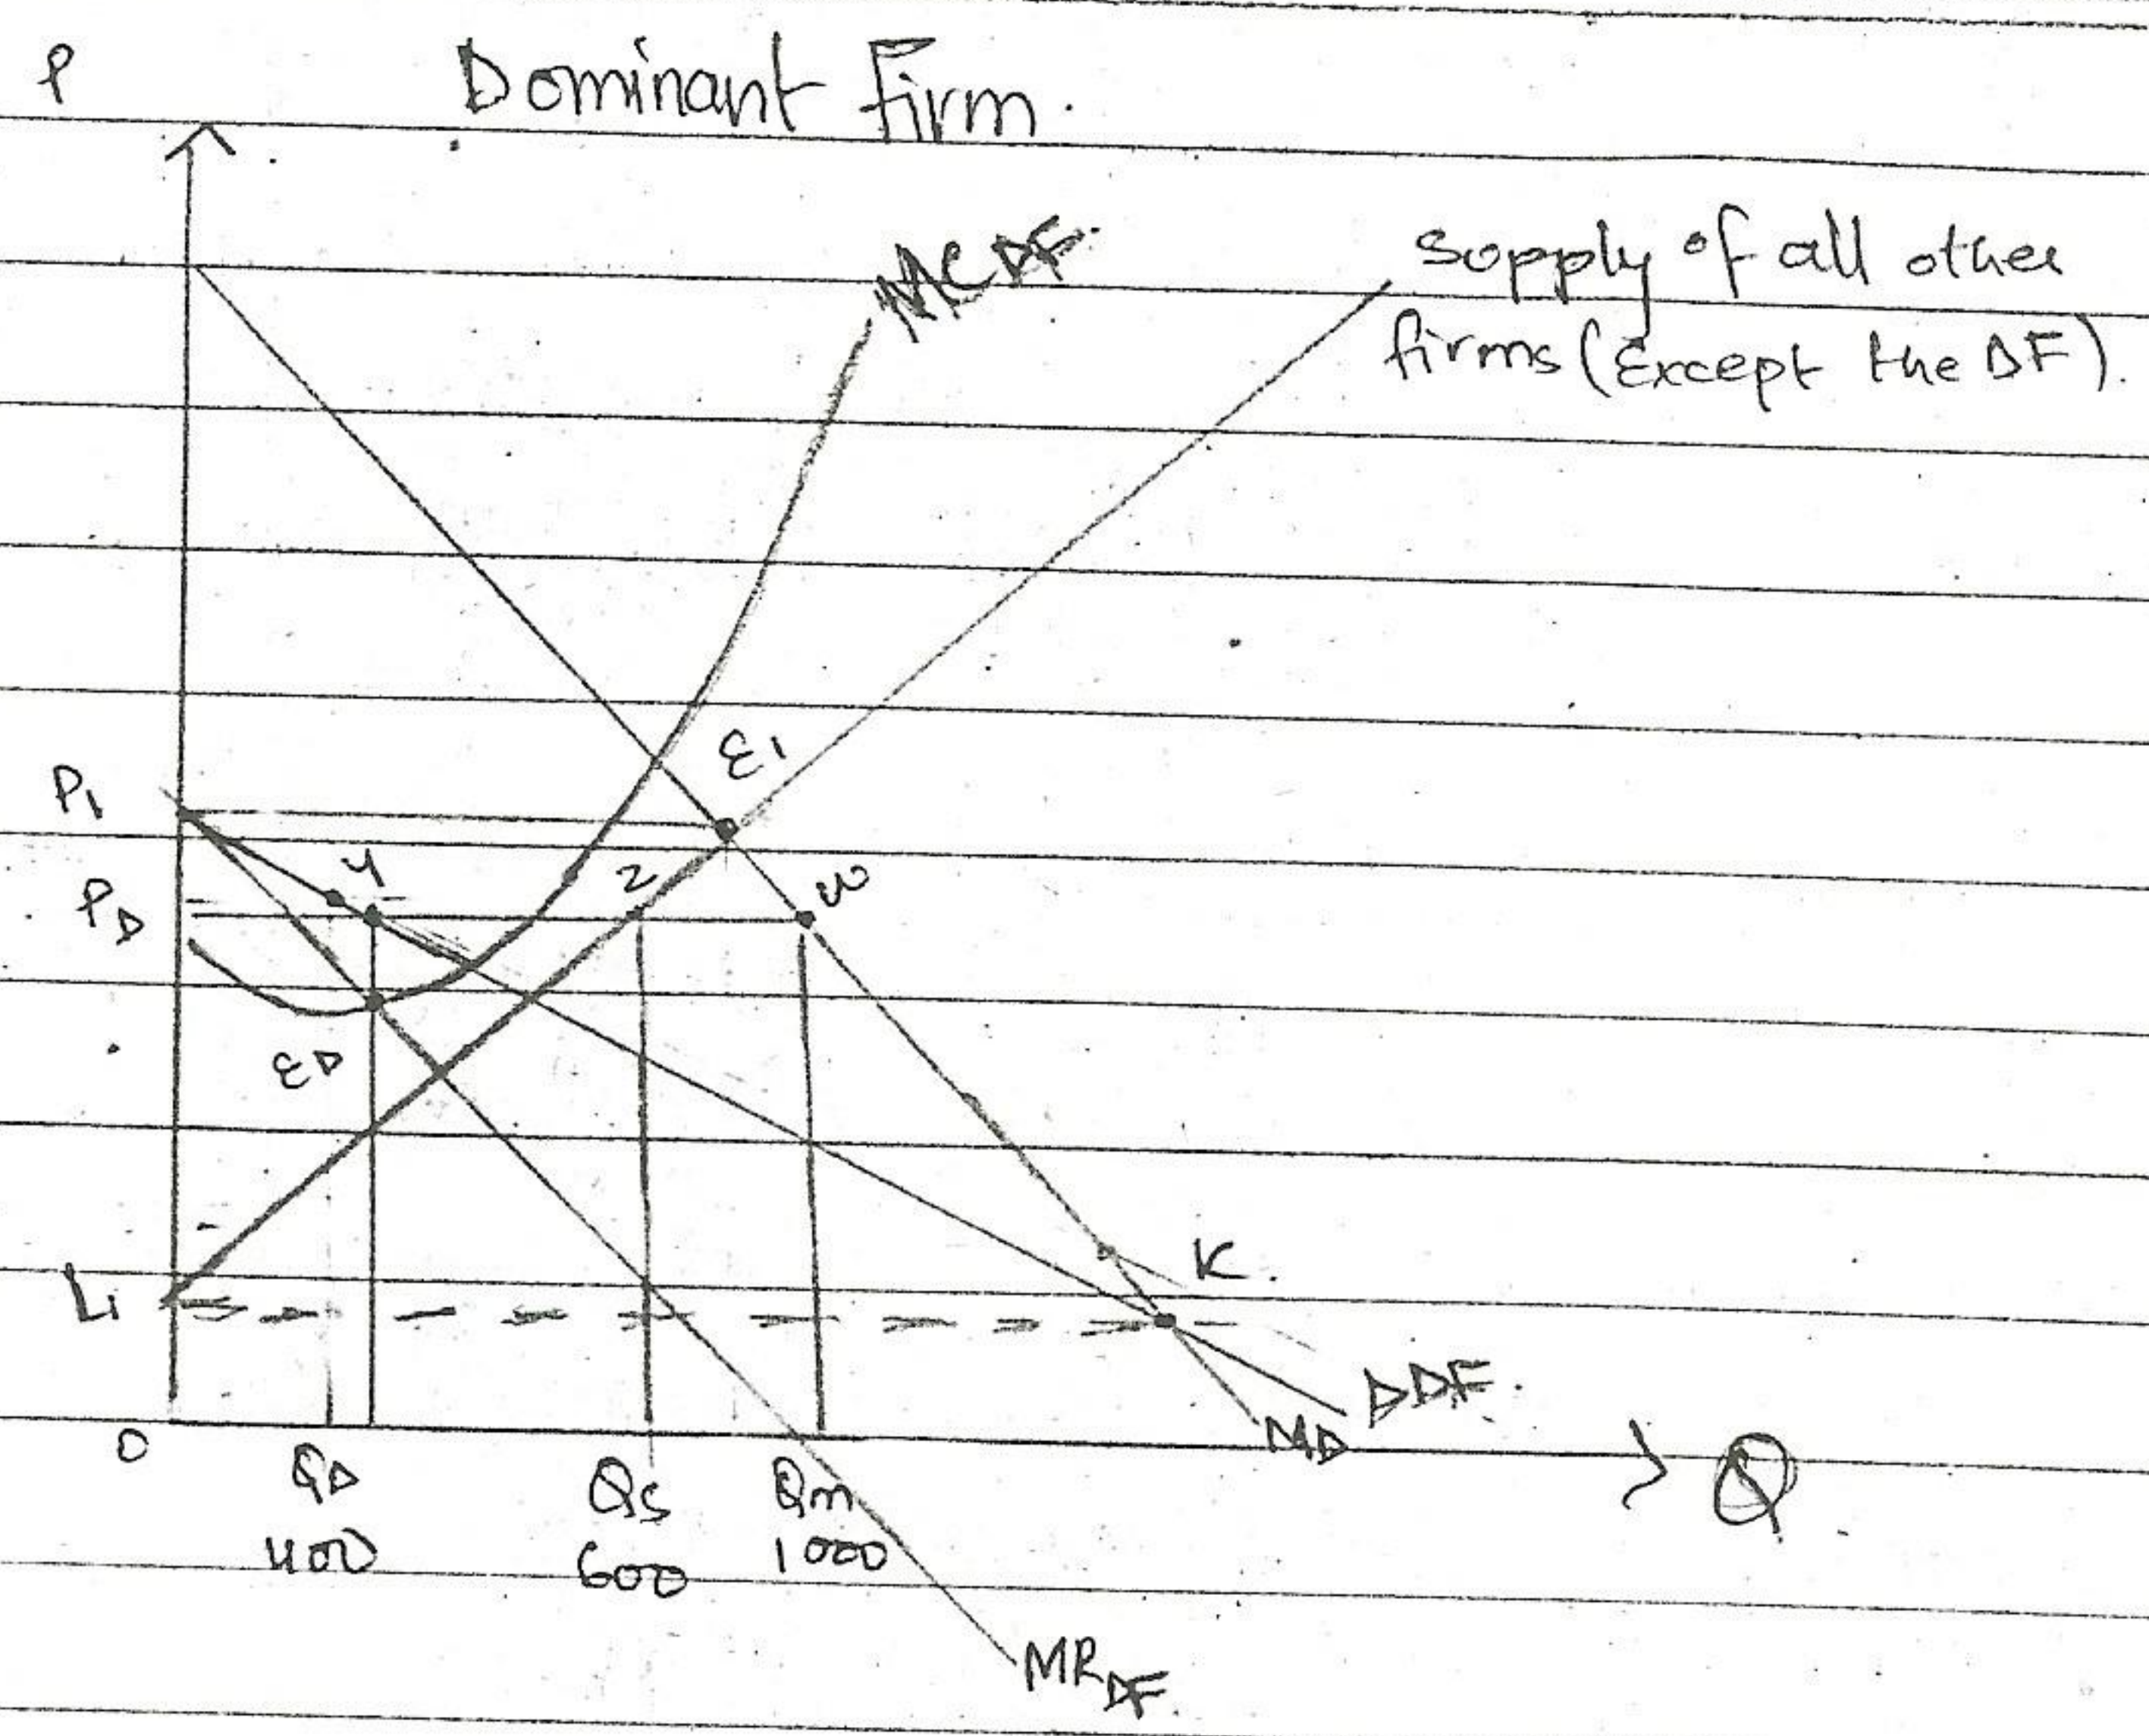 P
Dominant Firm.
MCDF.
Supply of all other
firms (Except the DF).
P1
E1
Y
Z
W
PD
ED
L1
K.
DDF.
MD
O
QD
QS
Qm
Q
400
600
1000
MRDF.